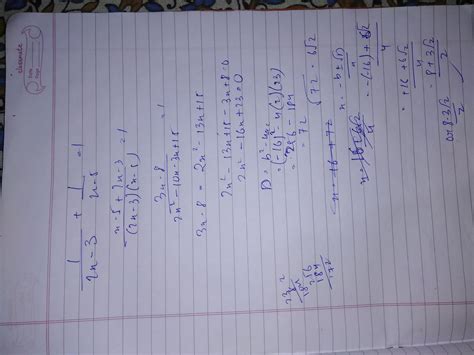 classmate
Date
Page
1/(2x-3) + 1/(x-5) = 1
(x-5+2x-3)/((2x-3)(x-5)) = 1
(3x-8)/(2x²-10x-3x+15) = 1
3x-8 = 2x²-13x+15
2x²-13x+15-3x+8=0
2x²-16x+23=0
D = b²-4ac
= (-16)²-4(2)(23)
= 256-184
= 72
√72 = 6√2
x = -b±√D
= -(-16)+6√2 / 4
= +16+6√2 / 4
= 8+3√2 / 2
or 8-3√2 / 2
256
184